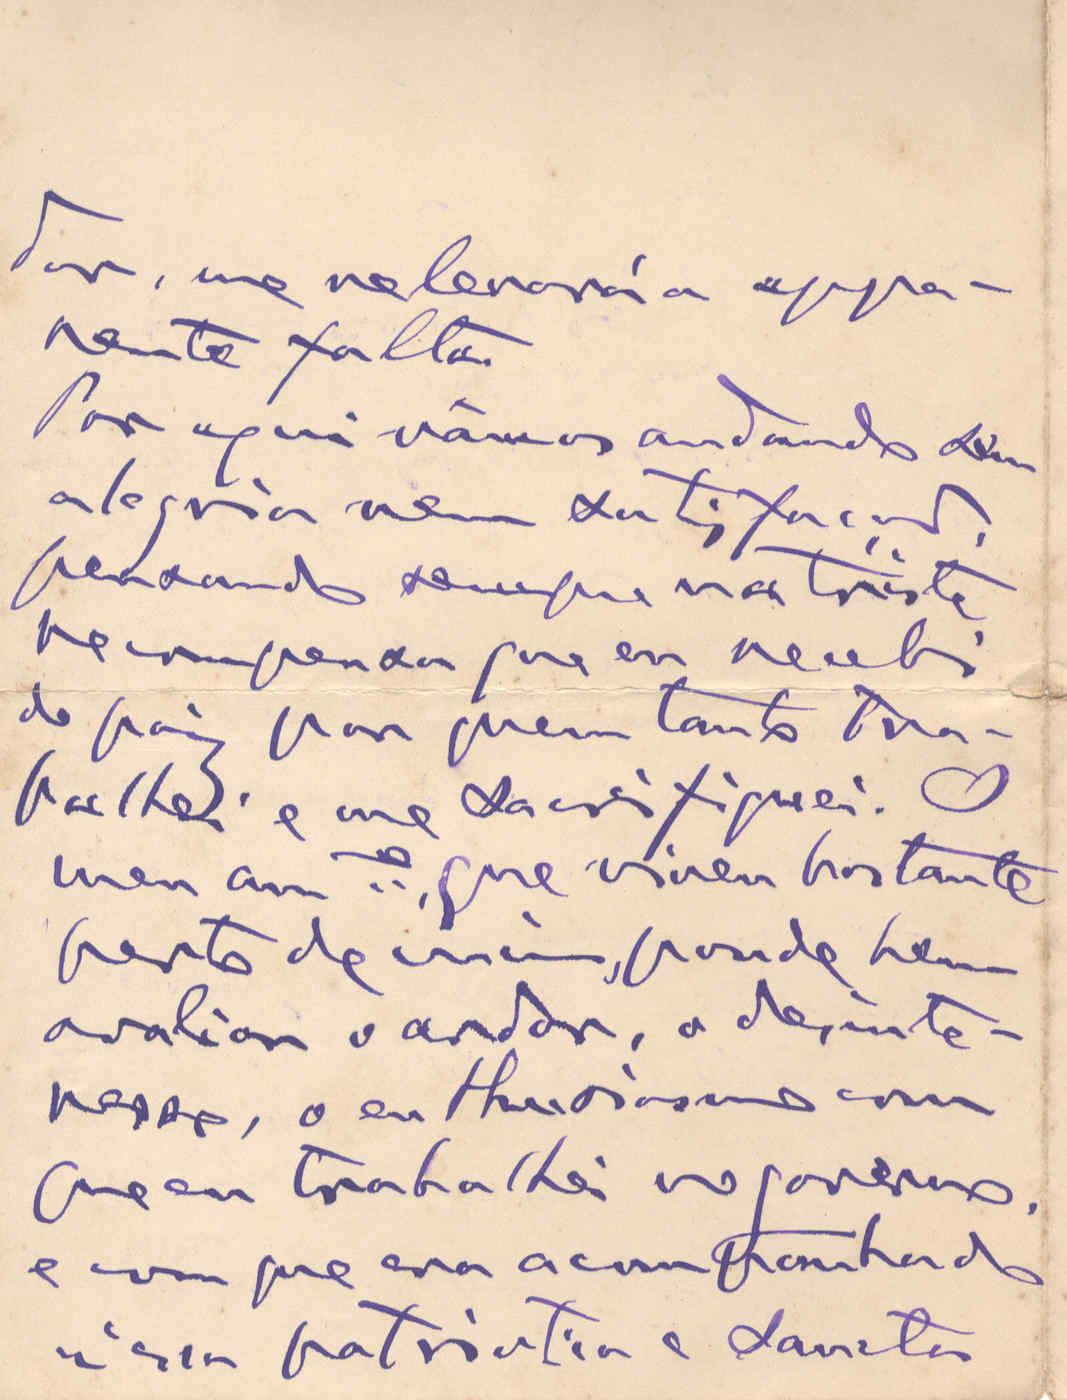 dor, me relevará a appa-
rente falta.
Por aqui vâmos andando sem
alegria nem satisfação,
pensando sempre na triste
recompensa que eu recebi
do paiz por quem tanto tra-
balhei e me sacrifiquei. O
meu am.º, que viveu bastante
perto de mim, poude bem
avaliar o ardor, o desinte-
resse, o enthusiasmo com
que eu trabalhei no governo,
e com que era acompanhado
n'essa patriotica e sancta